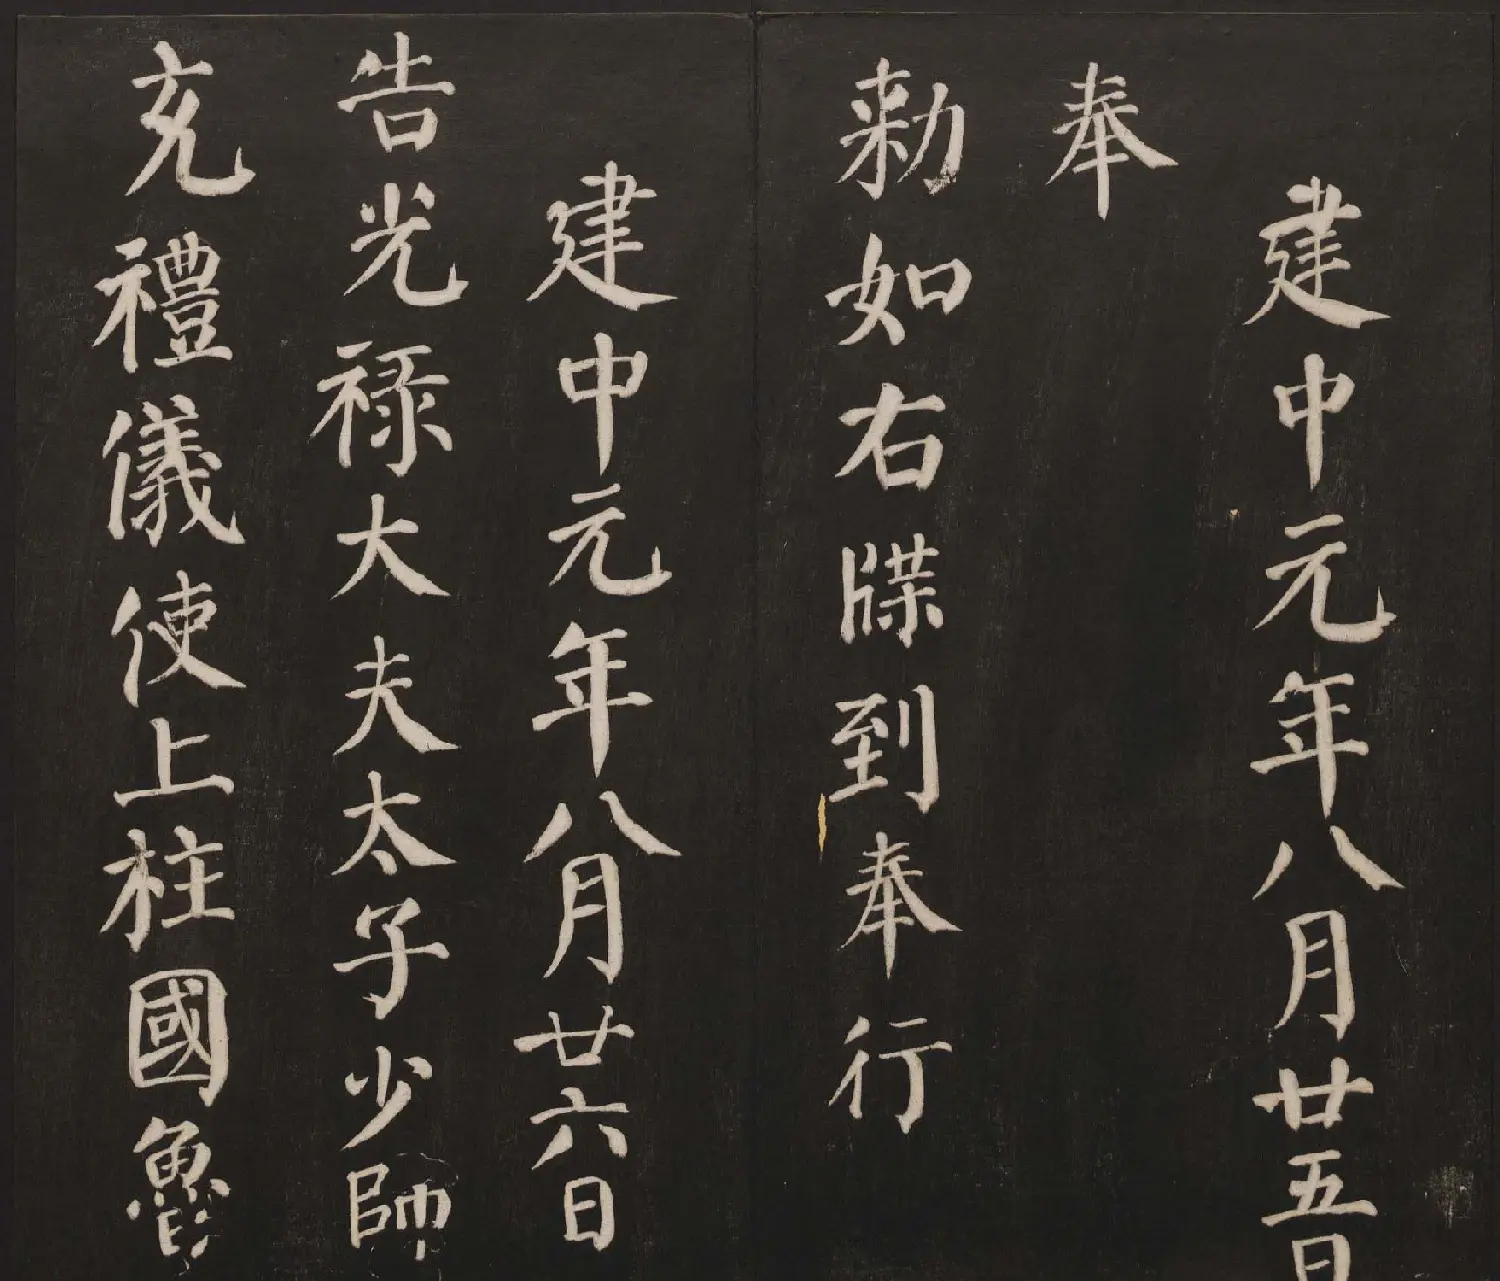 建中元年八月廿五日
奉
勑如右牒到奉行
建中元年八月廿六日
告光祿大夫太子少師
充禮儀使上柱國魯